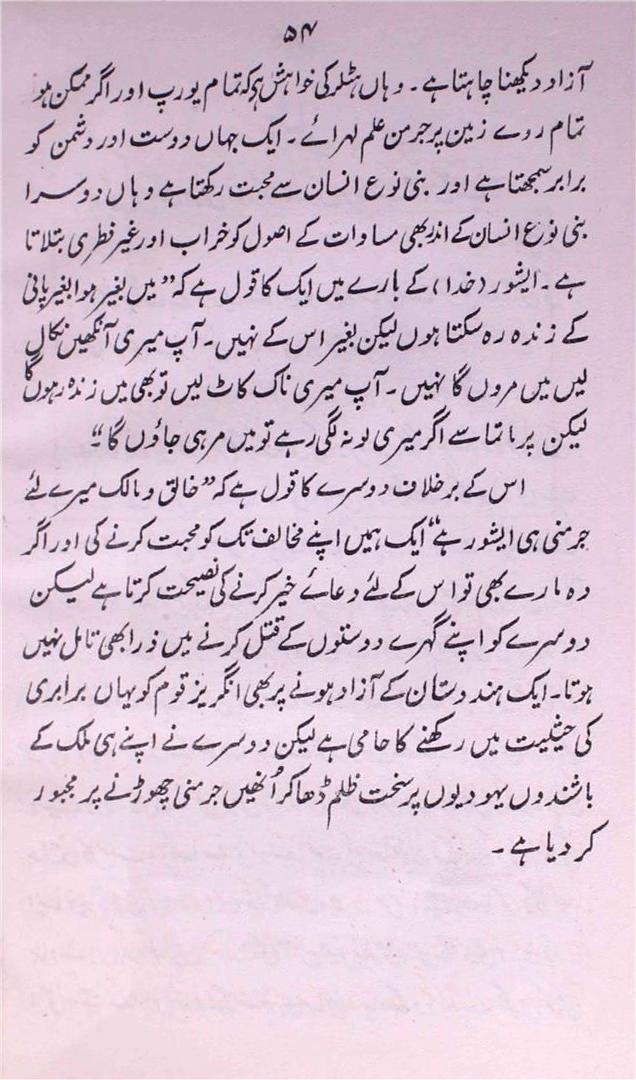 ۵۴
آزاد دیکھنا چاہتا ہے۔ وہاں ہٹلر کی خواہش ہے کہ تمام یورپ اور اگر ممکن ہو
تمام روے زمین پر جرمن علم لہرائے۔ ایک جہاں دوست اور دشمن کو
برابر سمجھتا ہے اور بنی نوع انسان سے محبت رکھتا ہے وہاں دوسرا
بنی نوع انسان کے اندر بھی مساوات کے اصول کو خراب اور غیر فطری بتلاتا
ہے۔ ایشور (خدا) کے بارے میں ایک کا قول ہے کہ ”میں بغیر ہوا بغیر پانی
کے زندہ رہ سکتا ہوں لیکن بغیر اس کے نہیں۔ آپ میری آنکھیں نکال
لیں میں مروں گا نہیں۔ آپ میری ناک کاٹ لیں تو بھی میں زندہ رہوں گا
لیکن پرماتما سے اگر میری لو نہ لگی رہے تو میں مر ہی جاؤں گا“
اس کے برخلاف دوسرے کا قول ہے کہ ”خالق و مالک میرے لئے
جرمنی ہی ایشور ہے“ ایک ہمیں اپنے مخالف تک کو محبت کرنے کی اور اگر
وہ مارے بھی تو اس کے لئے دعائے خیر کرنے کی نصیحت کرتا ہے لیکن
دوسرے کو اپنے گہرے دوستوں کے قتل کرنے میں ذرا بھی تامل نہیں
ہوتا۔ ایک ہندوستان کے آزاد ہونے پر بھی انگریز قوم کو یہاں برابری
کی حیثیت میں رکھنے کا حامی ہے لیکن دوسرے نے اپنے ہی ملک کے
باشندوں یہودیوں پر سخت ظلم ڈھا کر اُنھیں جرمنی چھوڑنے پر مجبور
کر دیا ہے۔